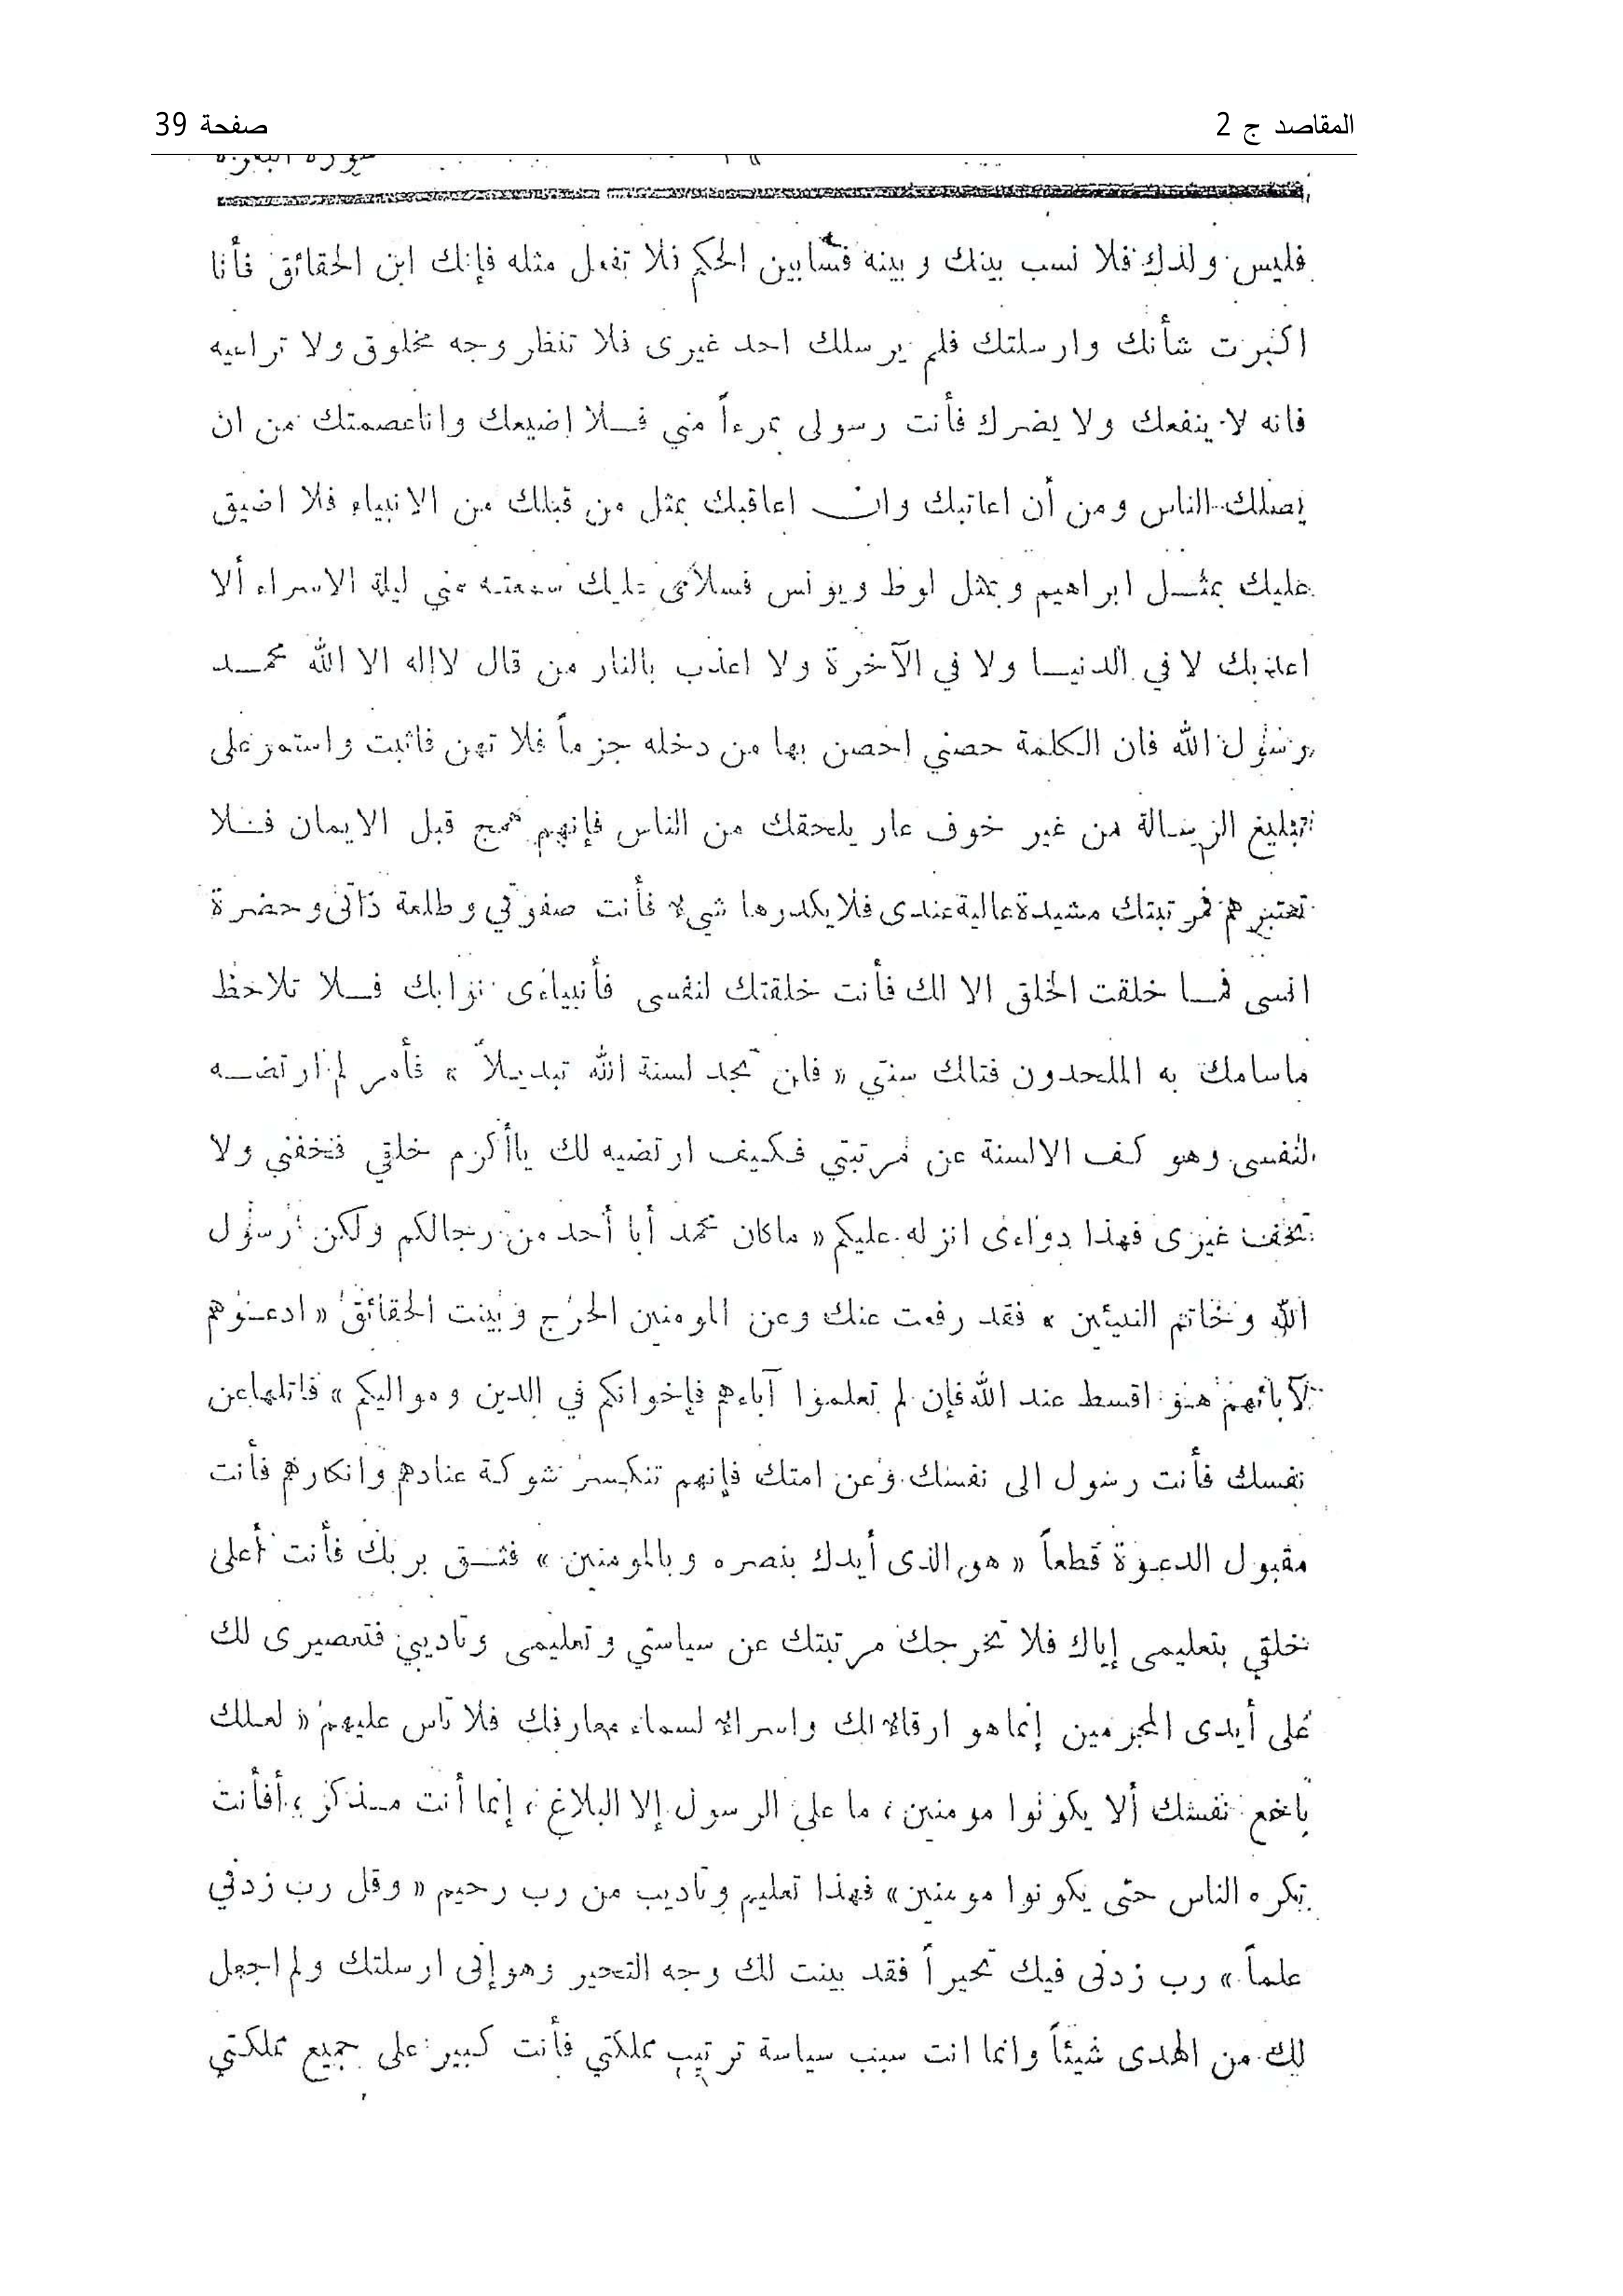 المقاصد ج 2 صفحة 39
فليس ولدك فلا نسب بينك وبينه فسأبين الحكم فلا تفعل مثله فإنك ابن الحقائق فأنا
اكبرت شأنك وارسلتك فلم يرسلك احد غيرى فلا تنظر وجه مخلوق ولا تراعيه
فانه لا ينفعك ولا يضرك فأنت رسولى تمرءاً مني فلا اضيعك وانا عصمتك من ان
يصلك الناس ومن أن اعاتبك وان اعاقبك بمثل من قبلك من الانبياء فلا اضيق
عليك بمثل ابراهيم وبمثل لوط ويونس فسلامى عليك سمعته مني ليلة الاسراء ألا
اعذبك لا في الدنيا ولا في الآخرة ولا اعذب بالنار من قال لا اله الا الله محمد
رسول الله فان الكلمة حصني احصن بها من دخله جزماً فلا تهن فاثبت واستمر على
تبليغ الرسالة من غير خوف عار يلحقك من الناس فإنهم همج قبل الايمان فلا
تعتبرهم فمرتبتك مشيدة عالية عندى فلا يكدرها شيء فأنت صفوتي وطلعة ذاتى وحضرة
انسى فما خلقت الخلق الا لك فأنت خلقتك لنفسى فأنبياءى نوابك فلا تلاحظ
ما سامك به الملحدون فتلك سنتي « فلن تجد لسنة الله تبديلاً » فأمر لم ارتضه
لنفسى وهو كف الالسنة عن مرتبتي فكيف ارتضيه لك يا أكرم خلقي فخفني ولا
تخف غيرى فهذا دواءى انزله عليكم « ما كان محمد أبا أحد من رجالكم ولكن رسول
الله وخاتم النبيئين » فقد رفعت عنك وعن المومنين الحرج وبينت الحقائق « ادعوهم
لآبائهم هو اقسط عند الله فإن لم تعلموا آباءهم فإخوانكم في الدين ومواليكم » فاتلها عن
نفسك فأنت رسول الى نفسك وعن امتك فإنهم تنكسر شوكة عنادهم وانكارهم فأنت
مقبول الدعوة قطعاً « هو الذى أيدك بنصره وبالمومنين » فثق بربك فأنت أعلى
خلقي بتعليمى إياك فلا تخرجك مرتبتك عن سياستي وتعليمى وتاديبي فتصيرى لك
على أيدى المجرمين إنما هو ارقاء لك واسراء لسماء معارفك فلا تاس عليهم « لعلك
باخع نفسك ألا يكونوا مومنين ، ما على الرسول إلا البلاغ ، إنما أنت مذكر ، أفأنت
تكره الناس حتى يكونوا مومنين » فهذا تعليم وتاديب من رب رحيم « وقل رب زدني
علماً » رب زدنى فيك تحيراً فقد بينت لك وجه التحير وهو إنى ارسلتك ولم اجعل
لك من الهدى شيئاً وانما انت سبب سياسة ترتيب مملكتي فأنت كبير على جميع مملكتي